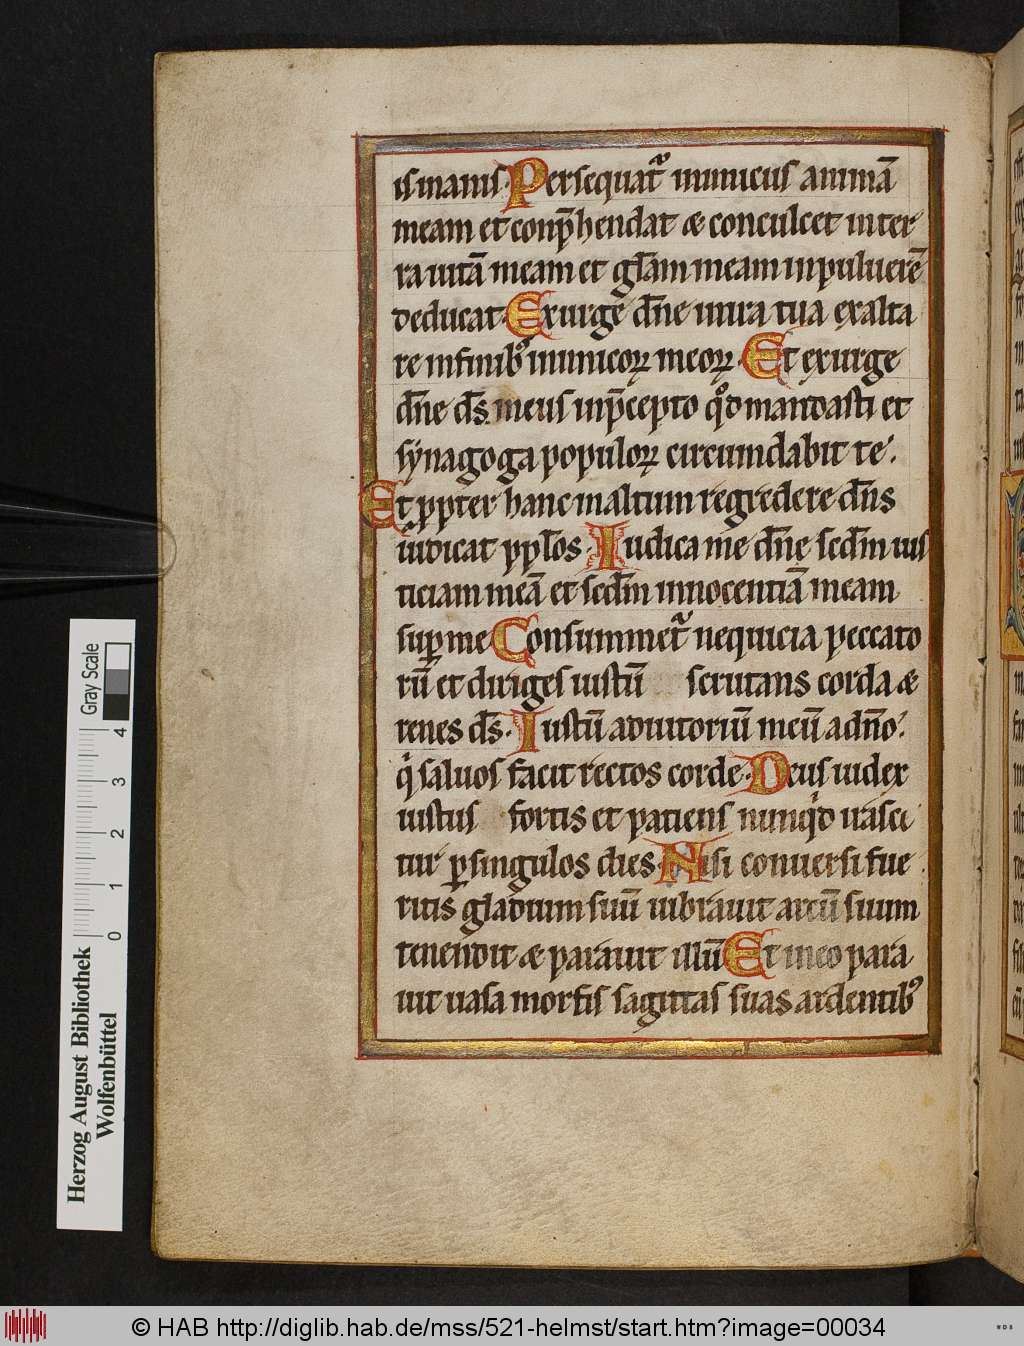 is inanis. Persequat᷑ inimicus animā
meam et conp̄hendat & conculcet in ter
ra uitā meam et gl̄am meam in puluerē
deducat. Exurge dn̄e in ira tua exalta
re in finibꝰ inimicoꝝ meoꝝ. Et exurge
dn̄e ds̄ meus in p̄cepto qͦd mandasti et
synagoga populoꝝ circumdabit te.
Et ꝓpter hanc in altum regredere dn̄s
iudicat ppl̄os. Iudica me dn̄e scd̄m ius
ticiam meā et scd̄m innocentiā meam
suꝑ me Consummet᷑ nequicia peccato
rū et diriges iustū scrutans corda &
renes ds̄. Iustū adiutoriū meū a dn̄o.
qͥ saluos facit rectos corde. Deus iudex
iustus fortis et patiens nunqͥd irasci
tur ꝑ singulos dies. Nisi conuersi fue
ritis gladium suū uibrauit arcū suum
tenendit & parauit illū Et in eo para
uit uasa mortis sagittas suas ardentibꝰ
Gray Scale
4
3
2
1
0
Herzog August Bibliothek
Wolfenbüttel
© HAB http://diglib.hab.de/mss/521-helmst/start.htm?image=00034